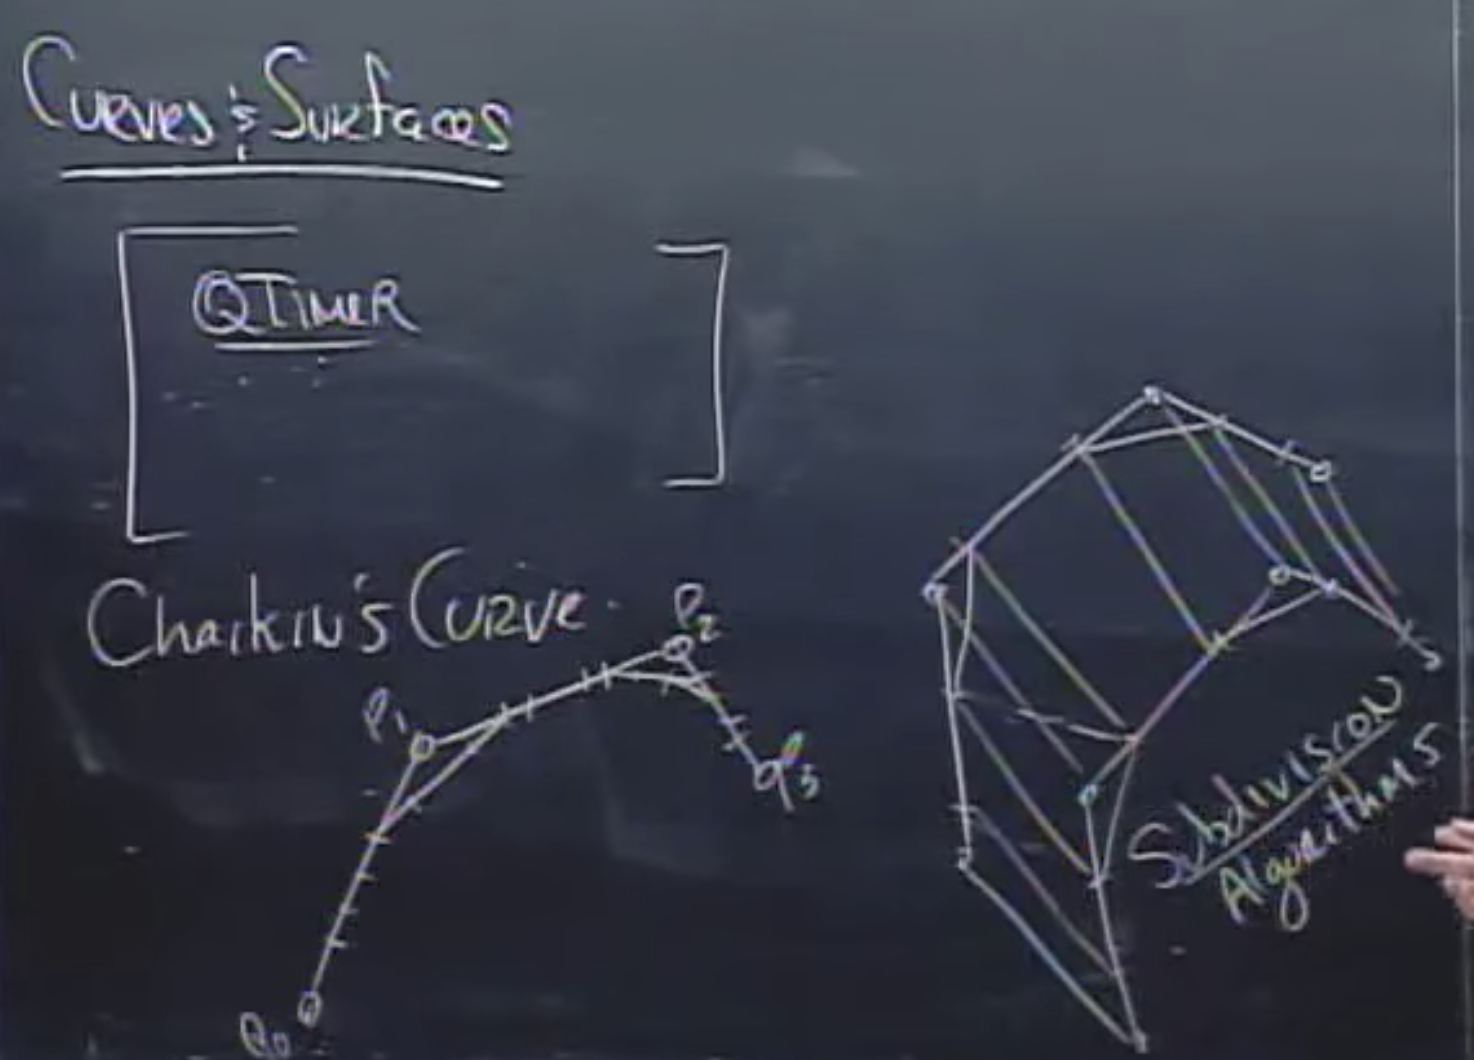 Curves & Surfaces
QTIMER
Chaikin's Curve
P2
P1
P3
P0
Subdivision
Algorithms